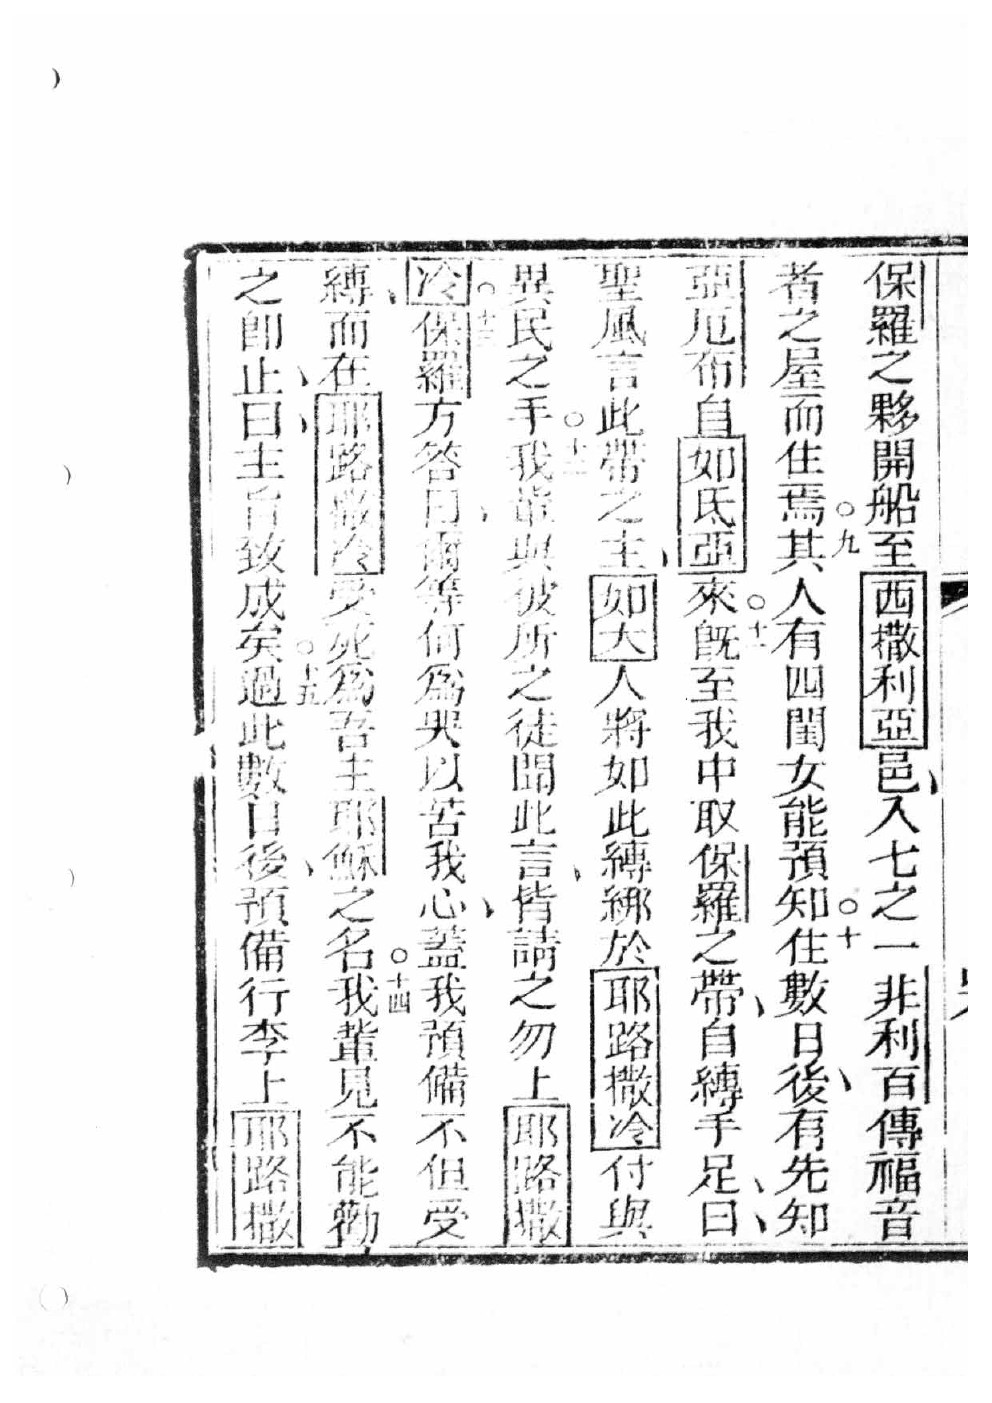 保羅之夥開船至西撒利亞邑、入七之一非利百傳福音
者之屋而住焉○九其人有四閨女能預知○十住數日後、有先知
亞厄布自如氐亞來○十一既至我中取保羅之帶、自縛手足、曰、
聖風言此帶之主、如大人將如此縛綁於耶路撒冷付與
異民之手○十二我輩與彼所之徒聞此言、皆請之勿上耶路撒
冷○十三保羅方答曰、爾等何為哭以苦我心、蓋我預備不但受
縛、而在耶路撒冷受死為吾主耶穌之名○十四我輩見不能勸
之即止、曰、主旨致成矣○十五過此數日後、預備行李上耶路撒